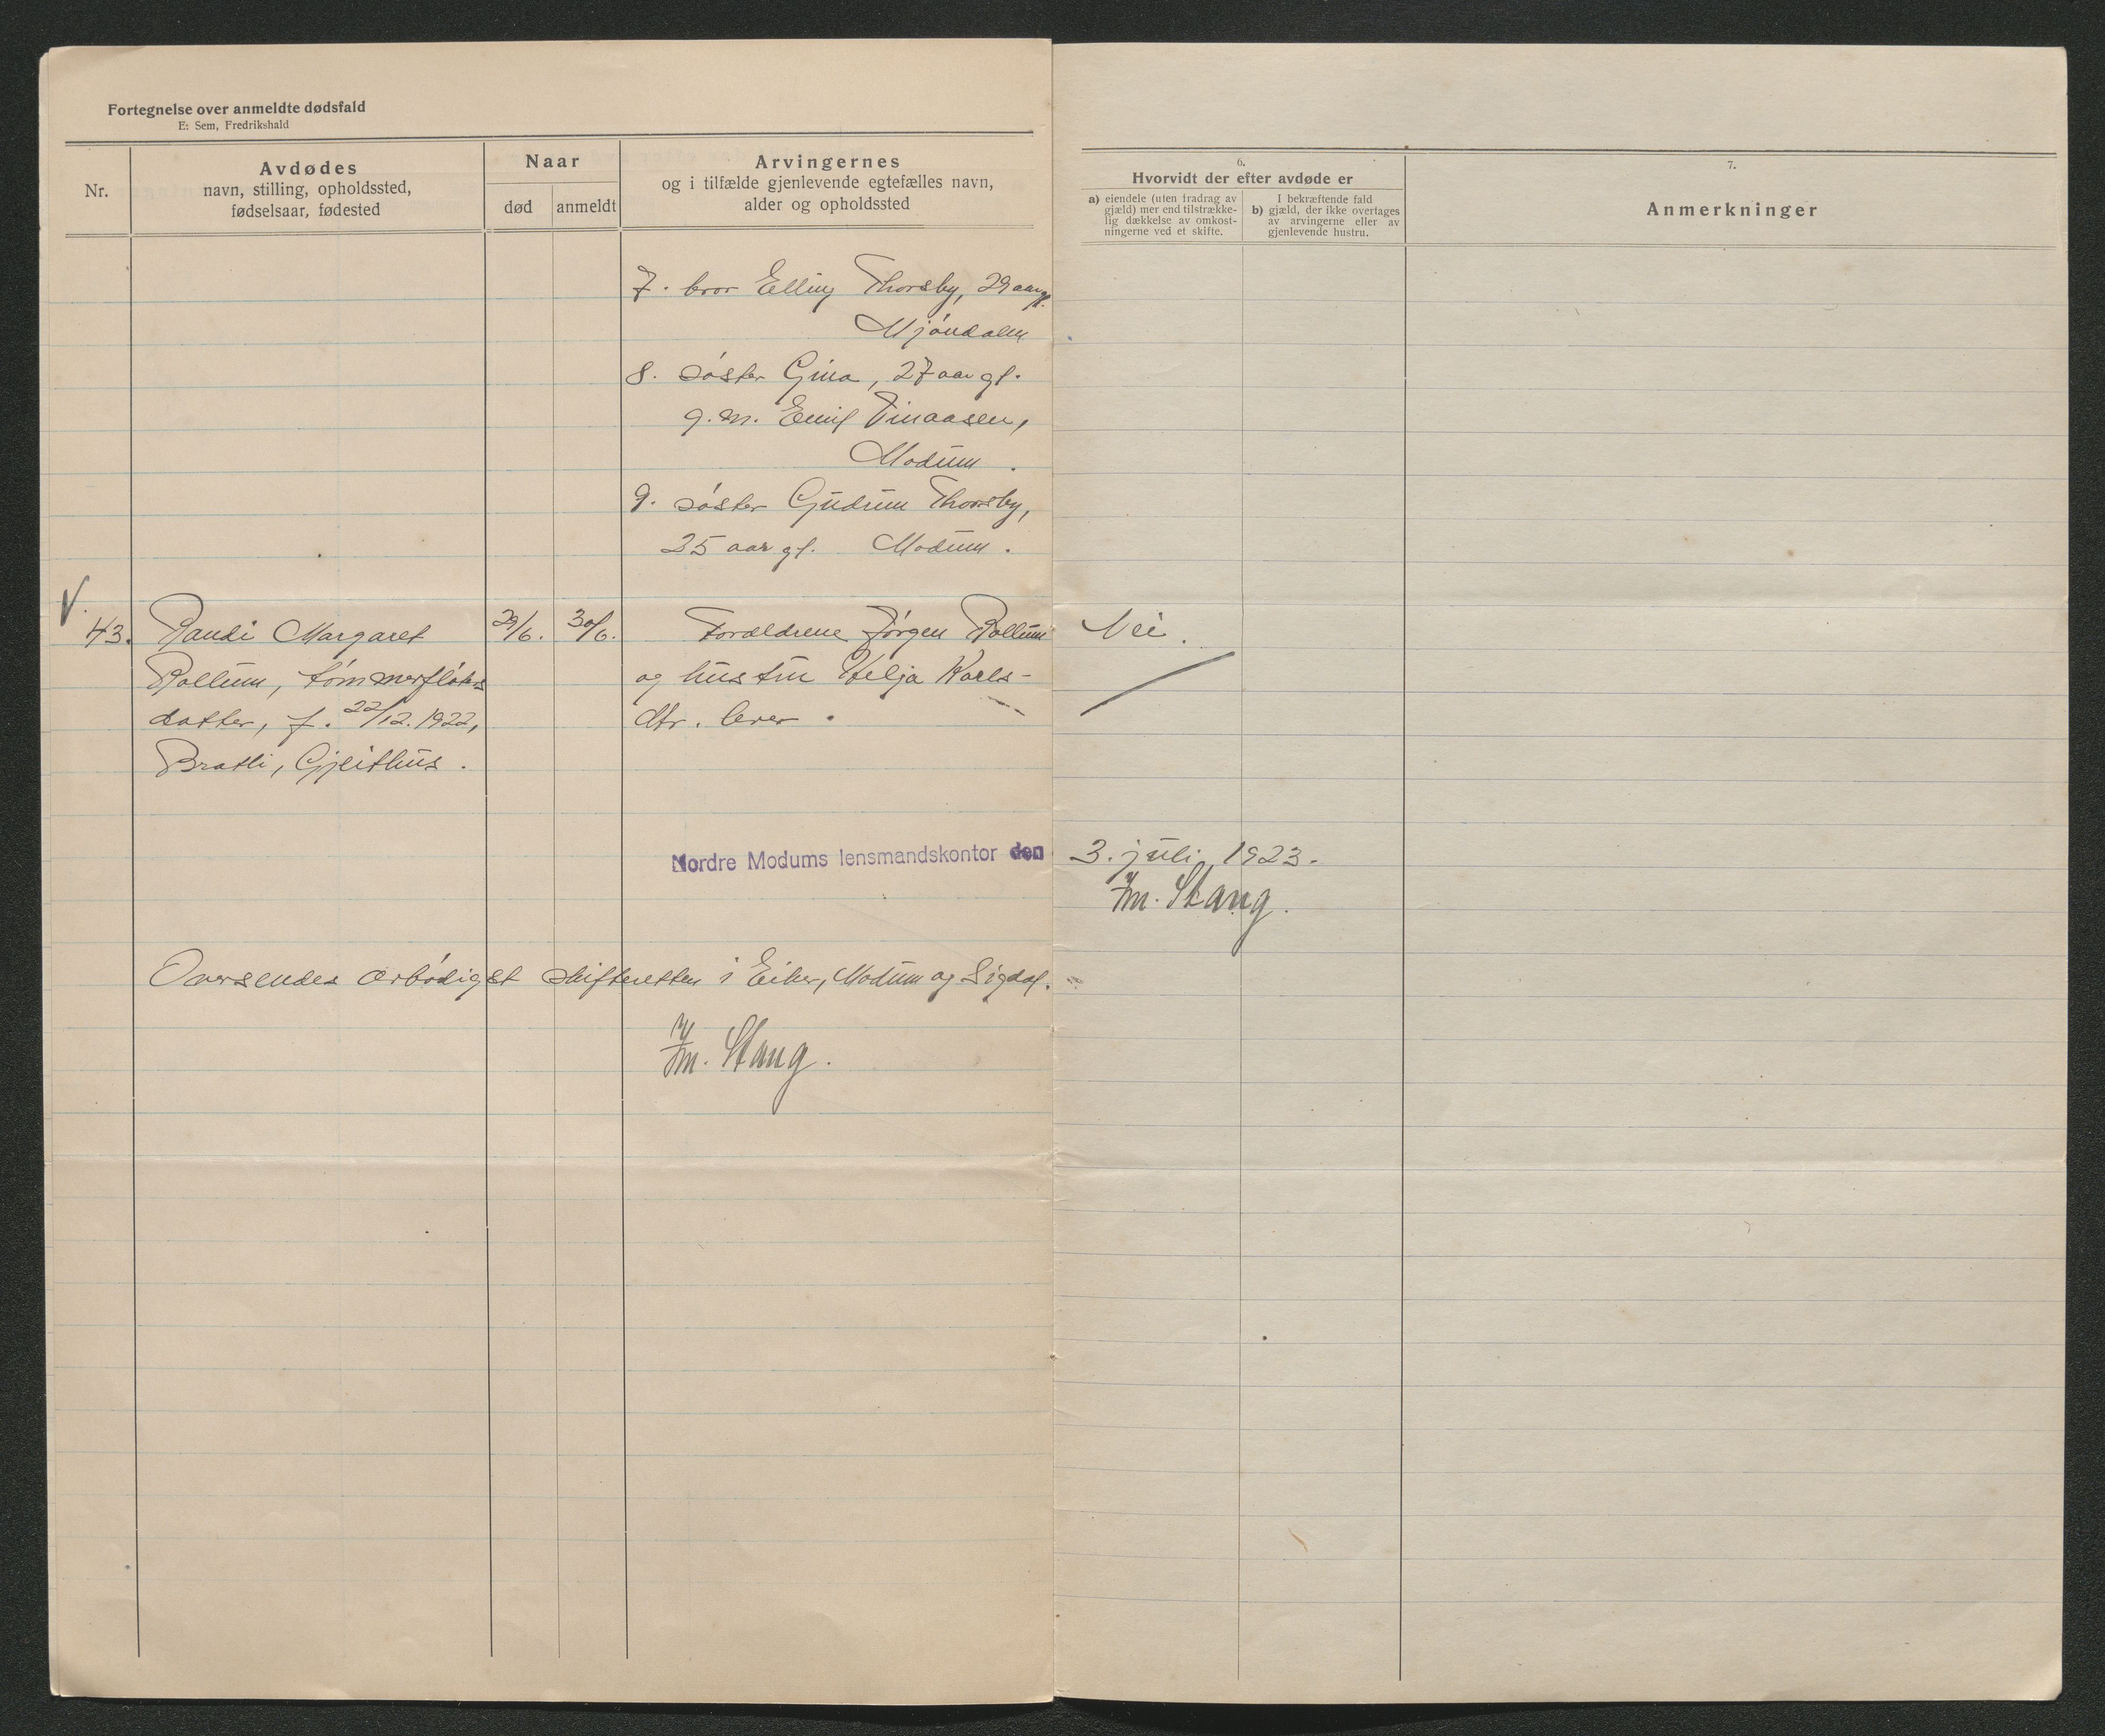 Fortegnelse over anmeldte dødsfald
E: Sem, Fredrikshald
Nr.
Avdødes
navn, stilling, opholdssted,
fødselsaar, fødested
Naar
død
anmeldt
Arvingernes
og i tilfælde gjenlevende egtefælles navn,
alder og opholdssted
6.
Hvorvidt der efter avdøde er
a) eiendele (uten fradrag av
gjæld) mer end tilstrække-
lig dækkelse av omkost-
ningerne ved et skifte.
I bekræftende fald
b) gjæld, der ikke overtages
av arvingerne eller av
gjenlevende hustru.
7.
Anmerkninger
7. bror Elling Thorsby, 29 aar gl.
Mjöndalen
8. söster Gina, 27 aar gl.
g.m. Emil Finaasen,
Modum.
9. söster Gudrun Thorsby,
25 aar gl. Modum.
43. Randi Margaret 29/6. 30/6. Forældrene Jörgen Rollum Nei.
Rollum, tömmerflöters og hustru Helja Karls-
datter, f. 22/12.1922, dtr. lever.
Bratli, Gjeithus.
Nordre Modums lensmandskontor den 3. juli 1923.
Fm. Stang.
Oversendes ærbödigst skifteretten i Eiker, Modum og Sigdal.
Fm. Stang.